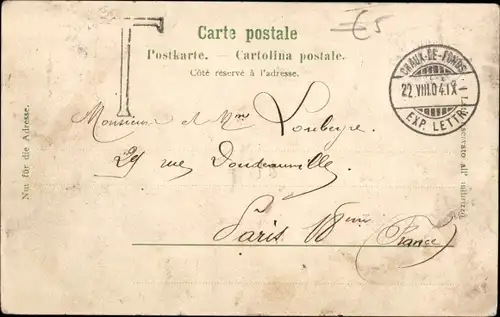 €5
T
Carte postale
Postkarte. — Cartolina postale.
Côté réservé à l'adresse.
CHAUX-DE-FONDS
22.VIII.04.IX
EXP. LETTR.
Nur für die Adresse.
Lato riservato all' indirizzo.
Monsieur et Mme Loubeyre
29 rue Doudeauville
Paris 18ème
France